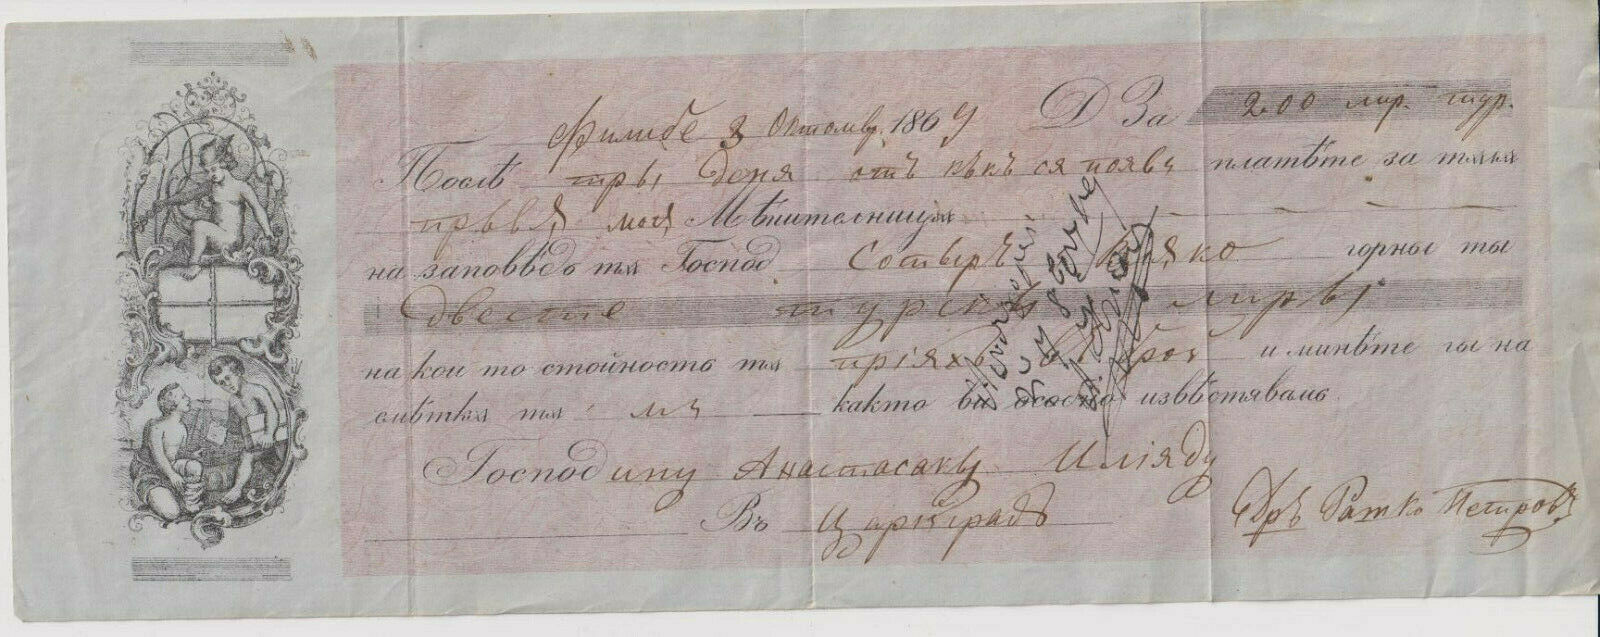 Филибе 3 Октомвр. 1869 За 200 лир. тур.
Послѣ три деня отъ какъ ся появи платѣте за тѫзи
първѫ моѭ Мѣнителницѫ
на заповѣдь тѫ Господ. Сотыръ горны ты
двесте турски лиры
на кои то стойность тѫ пріяхъ и минѣте гы на
смѣткѫ тѫ ми както ви особно извѣстявамъ
Господину Анастасаку Иліяду
Въ Цариградъ
Ратко Петровъ